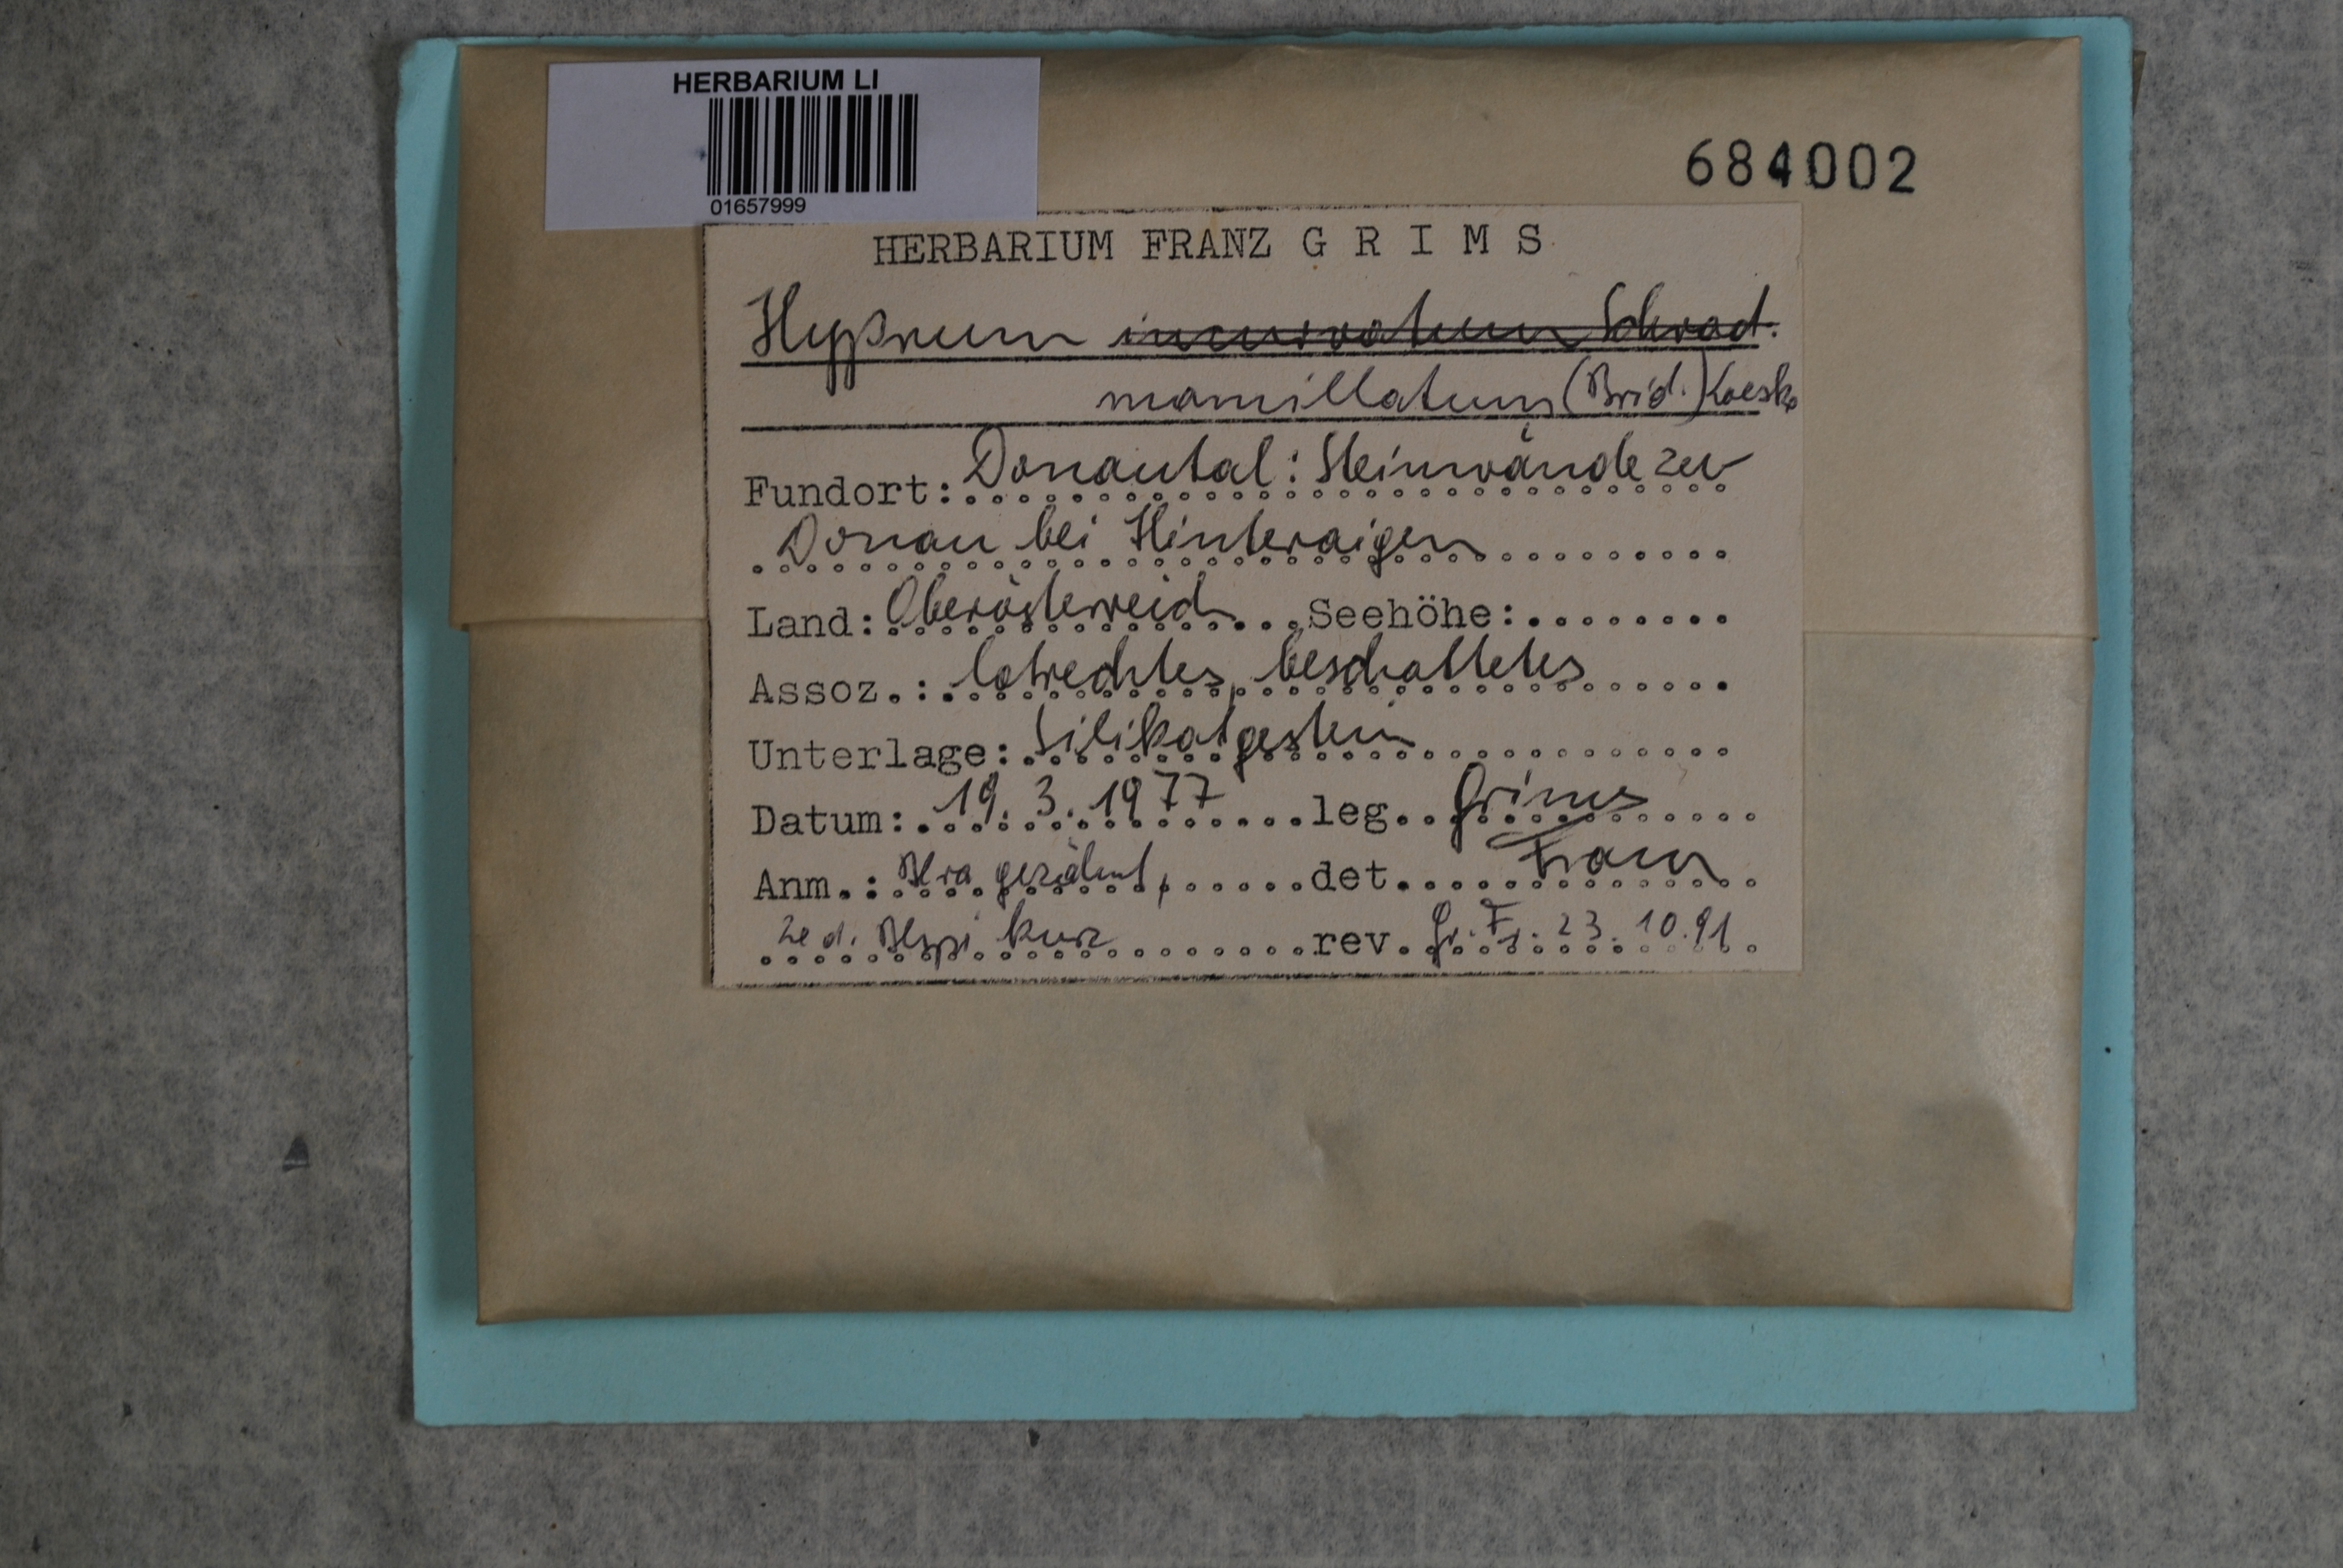 HERBARIUM LI
01657999
684002
HERBARIUM FRANZ G R I M S
Hypnum incurvatum Schrad.
mamillatum (Brid.) Loeske
Fundort: Donautal: Steinwände zur
Donau bei Hinteraigen
Land: Oberösterreich Seehöhe:
Assoz.: lotrechtes, beschattetes
Unterlage: Silikatgestein
Datum: 19. 3. 1977 leg. Grims
Anm.: Blra gezähnt, det. Franz
Ze d. Blspi kurz rev. Gr. Fr. 23. 10. 91